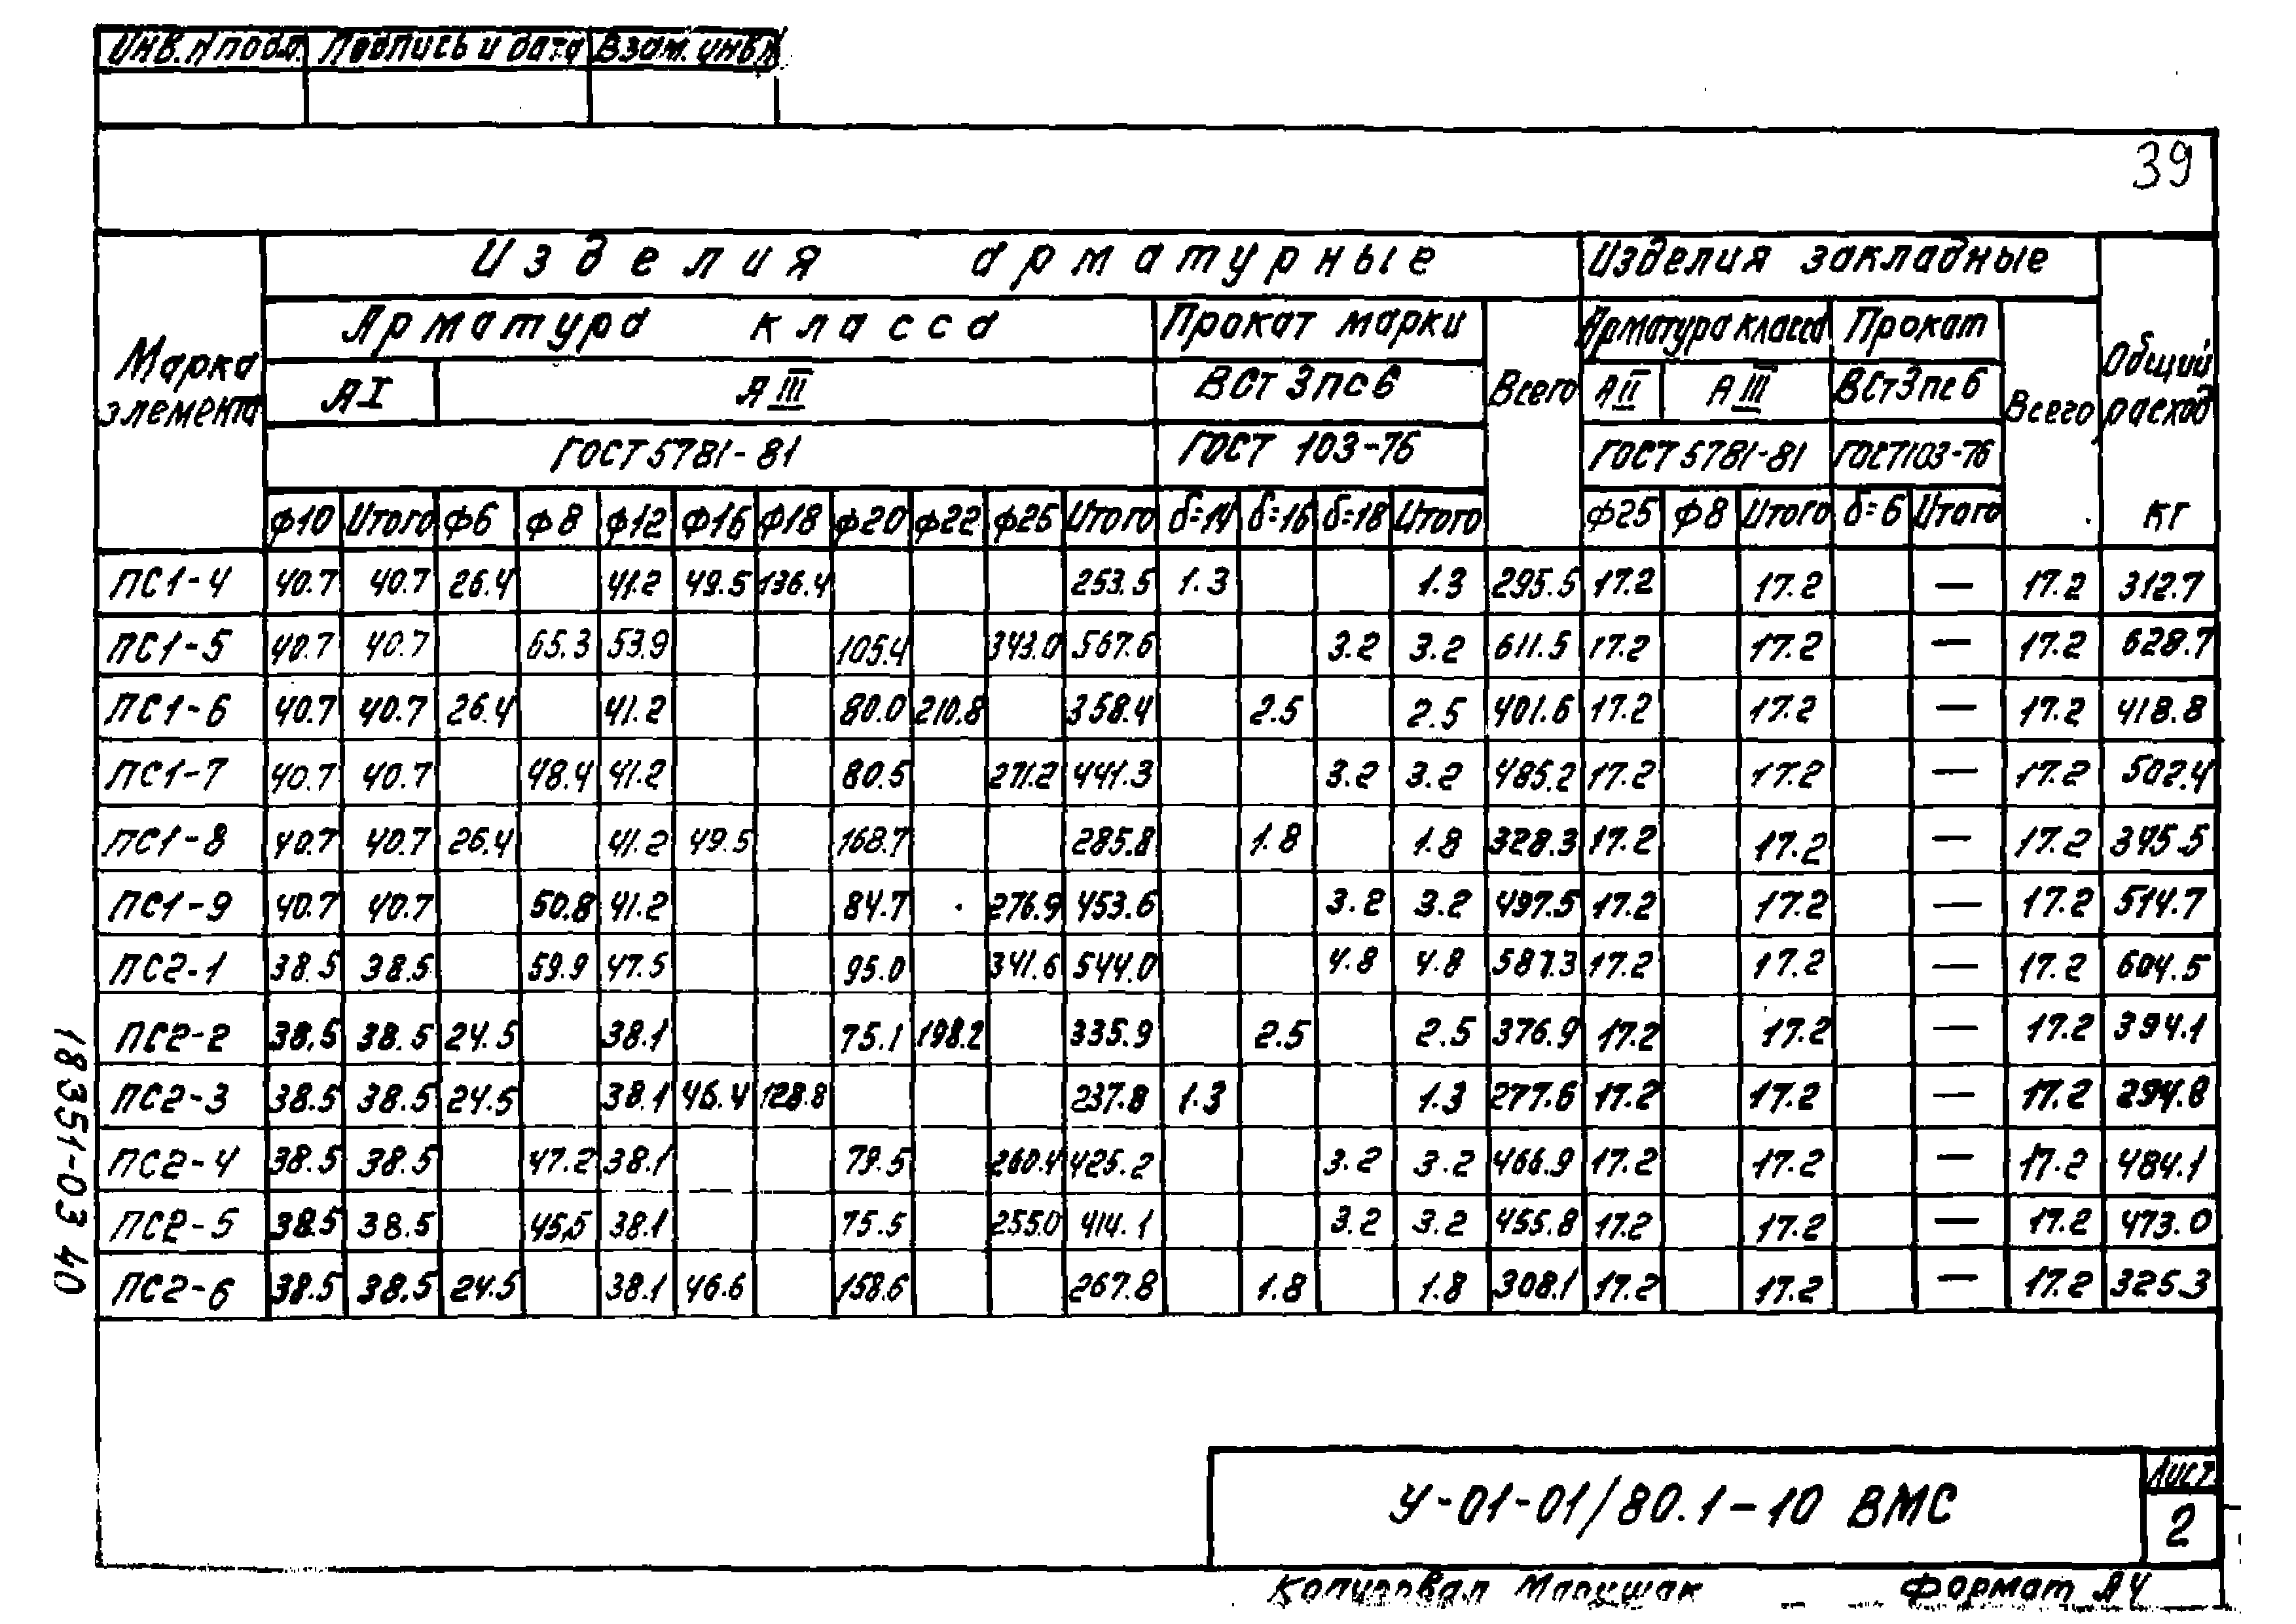 Инв. N подл. Подпись и дата Взам. инв N
39
Марка элемента Изделия арматурные Изделия закладные Общий расход кг
Арматура класса Прокат марки Всего Арматура класса Прокат Всего
АI АIII ВСт3пс6 АII АIII ВСт3пс6
ГОСТ 5781-81 ГОСТ 103-76 ГОСТ 5781-81 ГОСТ 103-76
ф10 Итого ф6 ф8 ф12 ф16 ф18 ф20 ф22 ф25 Итого δ=14 δ=16 δ=18 Итого ф25 ф8 Итого δ=6 Итого
ПС1-4 40.7 40.7 26.4 41.2 49.5 136.4 253.5 1.3 1.3 295.5 17.2 17.2 — 17.2 312.7
ПС1-5 40.7 40.7 65.3 53.9 105.4 343.0 567.6 3.2 3.2 611.5 17.2 17.2 — 17.2 628.7
ПС1-6 40.7 40.7 26.4 41.2 80.0 210.8 358.4 2.5 2.5 401.6 17.2 17.2 — 17.2 418.8
ПС1-7 40.7 40.7 48.4 41.2 80.5 271.2 441.3 3.2 3.2 485.2 17.2 17.2 — 17.2 502.4
ПС1-8 40.7 40.7 26.4 41.2 49.5 168.7 285.8 1.8 1.8 328.3 17.2 17.2 — 17.2 345.5
ПС1-9 40.7 40.7 50.8 41.2 84.7 276.9 453.6 3.2 3.2 497.5 17.2 17.2 — 17.2 514.7
ПС2-1 38.5 38.5 59.9 47.5 95.0 341.6 544.0 4.8 4.8 587.3 17.2 17.2 — 17.2 604.5
ПС2-2 38.5 38.5 24.5 38.1 75.1 198.2 335.9 2.5 2.5 376.9 17.2 17.2 — 17.2 394.1
ПС2-3 38.5 38.5 24.5 38.1 46.4 128.8 237.8 1.3 1.3 277.6 17.2 17.2 — 17.2 294.8
ПС2-4 38.5 38.5 47.2 38.1 79.5 260.4 425.2 3.2 3.2 466.9 17.2 17.2 — 17.2 484.1
ПС2-5 38.5 38.5 45.5 38.1 75.5 255.0 414.1 3.2 3.2 455.8 17.2 17.2 — 17.2 473.0
ПС2-6 38.5 38.5 24.5 38.1 46.6 158.6 267.8 1.8 1.8 308.1 17.2 17.2 — 17.2 325.3
18351-03 40
У-01-01/80.1-10 ВМС
Лист
2
Копировал Марушак Формат А4